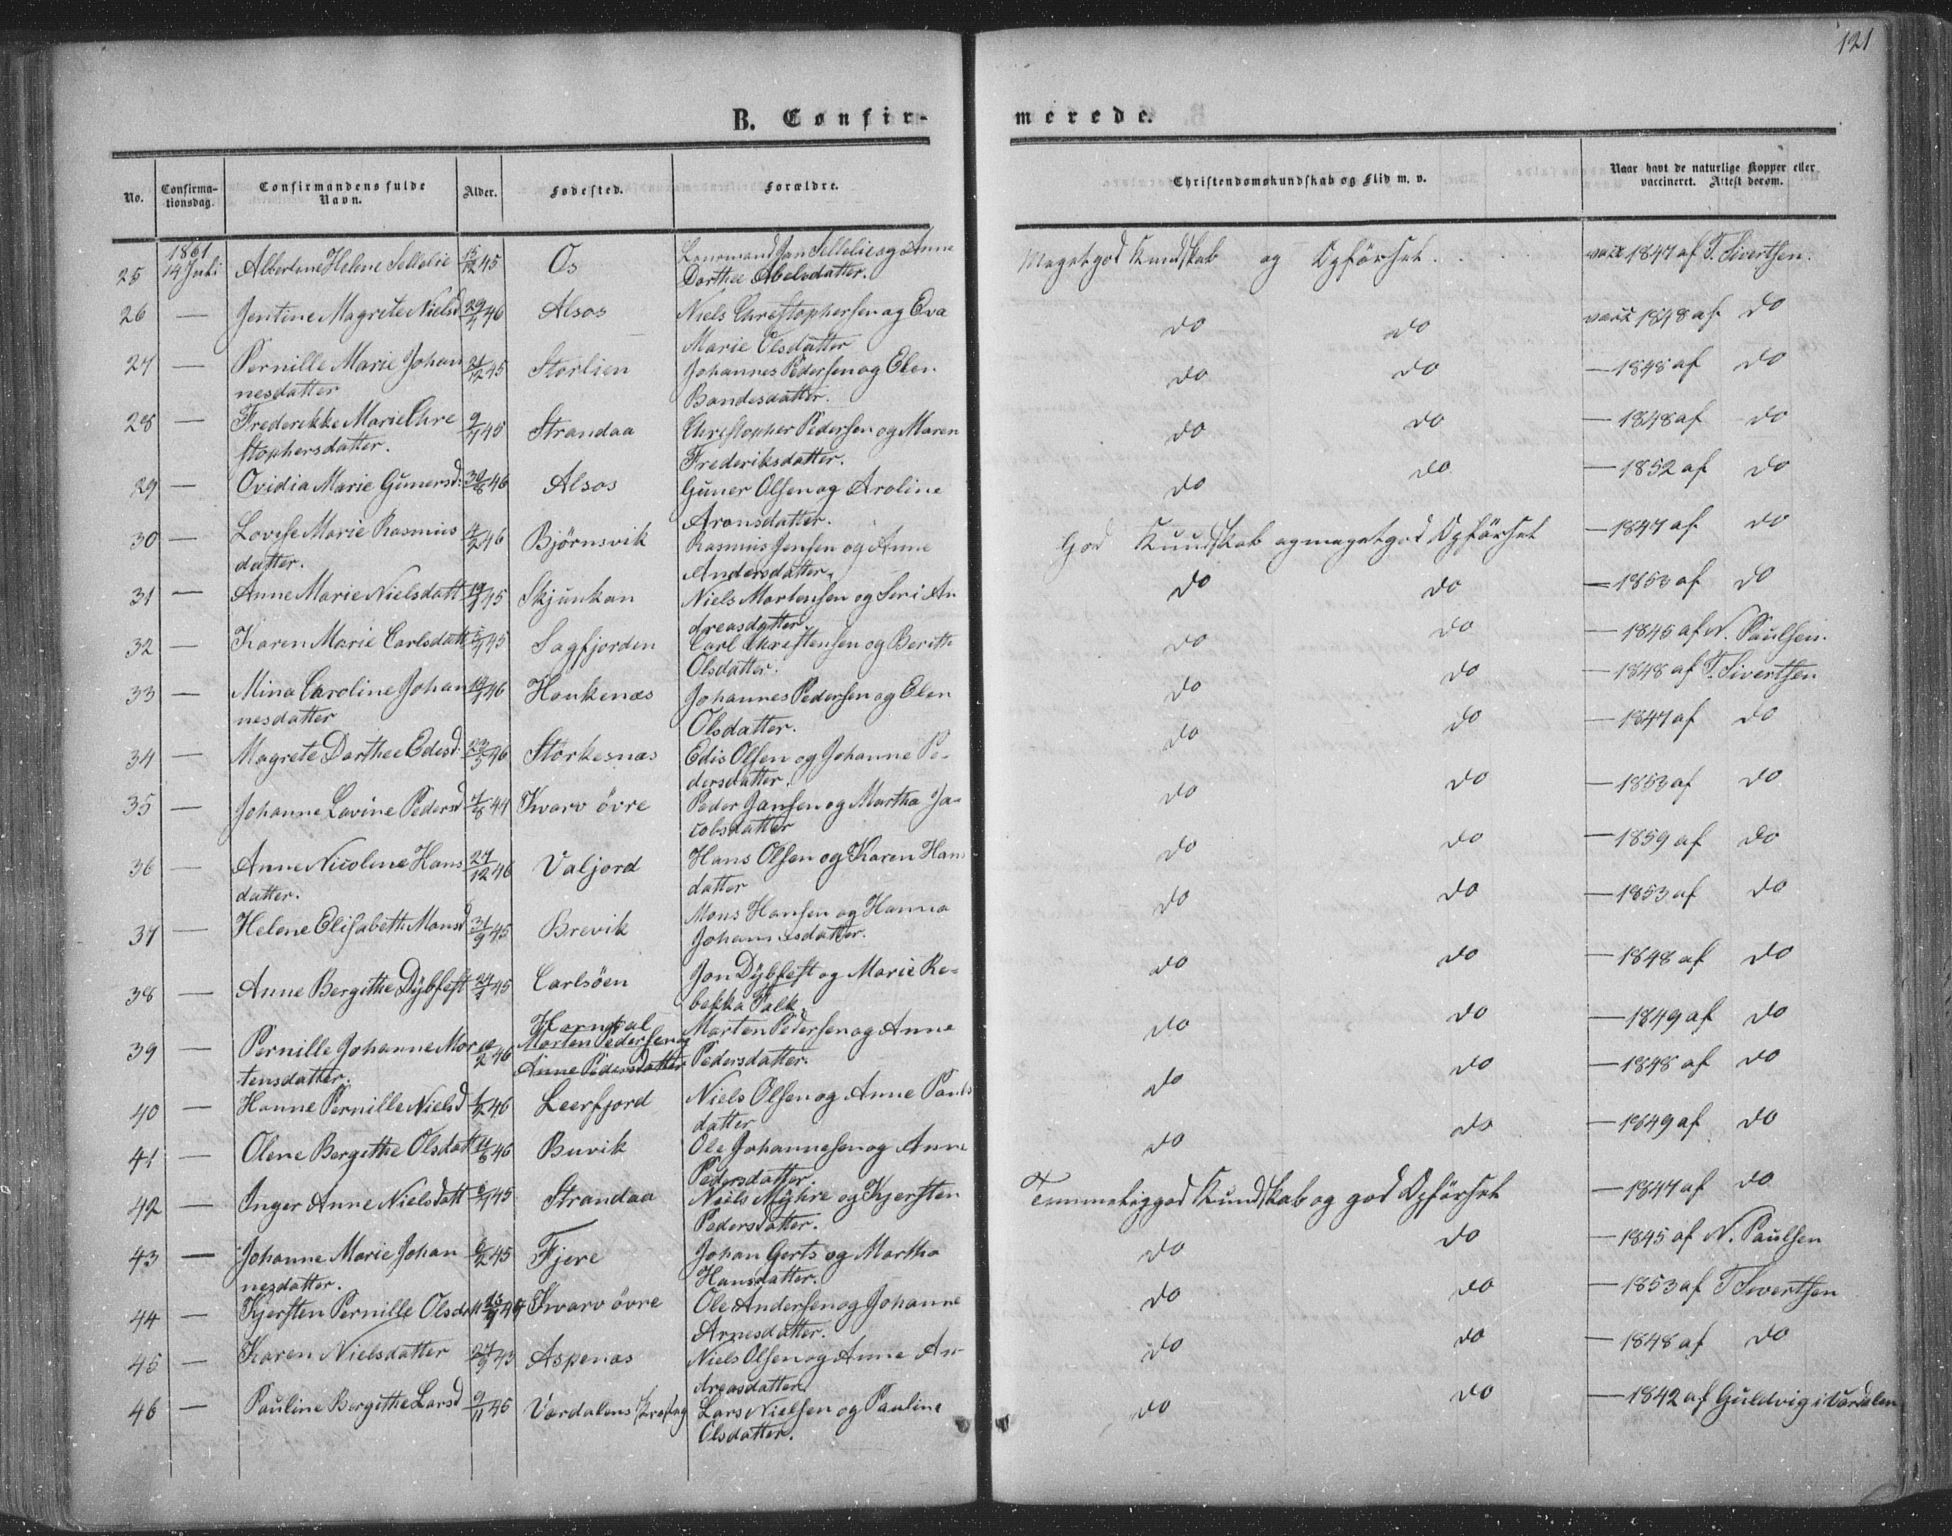 121
B. Confir-
merede.
No.
Confirma-
tionsdag.
Confirmandens fulde
Navn.
Alder.
Fødested.
Forældre.
Christendomskundskab og Flid m. v.
Naar havt de naturlige Kopper eller
vaccineret. Attest derom.
1861
25 14 Juli Albertene Helene Sellelie 15/12 45 Os Lensmand Jan Sellelie og Anne
Dorthee Abelsdatter. Meget god Kundskab og Opførsel. vacc 1847 af T. Sivertsen.
26 — Jentine Magrete Nielsd 46 Alsos Niels Christophersen og Eva
Marie Olsdatter do do vacc 1848 af do
27 — Pernille Marie Johan 21/12 45 Storlien Johannes Pedersen og Elen
nesdatter Bandesdatter. do do — 1848 af do
28 — Frederikke Marie Chre 45 Strandaa Christopher Pedersen og Maren
stophersdatter. Frederiksdatter. do do — 1848 af do
29 — Ovidia Marie Gunersd: 30/8 46 Alsos Guner Olsen og Aroline
Aronsdatter. do do — 1852 af do
30 — Lovise Marie Rasmus 46 Bjørnsvik Rasmus Jensen og Anne
datter. Andersdatter. God Kundskab og meget god Opførsel — 1847 af do
31 — Anne Marie Nielsdatt 45 Skjunkan Niels Mortensen og Seri An
dreasdatter do do — 1853 af do
32 — Karen Marie Carlsdatt 45 Sagfjorden Carl Christensen og Berith
Olsdatter. do do — 1845 af N. Paulsen.
33 — Mina Caroline Johan 46 Haukenæs Johannes Pedersen og Elen
nesdatter Olsdatter. do do — 1848 af T. Sivertsen
34 — Magrete Dorthee Edisd: 23/5 46 Storkesnæs Edis Olsen og Johanne Pe-
dersdatter. do do — 1847 af do
35 — Johanne Lavine Pedersd 44 Kvarv øvre Peder Jansen og Martha Ja-
cobsdatter do do — 1853 af do
36 — Anne Nicoline Hans 27/12 46 Valjord Hans Olsen og Karen Hans
datter. datter do do — 1859 af do
37 — Helene Elisabeth Monsd 31/9 45 Brevik Mons Hansen og Hanna
Johannesdatter. do do — 1853 af do
38 — Anne Bergithe Dybfest 45 Carlsøen Jon Dybfest og Marie Re-
bekka Falk. do do — 1848 af do
39 — Pernille Johanne Mor 46 Morten Pedersen og Anne
tensdatter. Morten Pedersen og
Anne Pedersdatter Pedersdatter. do do — 1849 af do
40 — Hanne Pernille Nielsd 46 Leerfjord Niels Olsen og Anne Pauls
datter do do — 1848 af do
41 — Olene Bergithe Olsdat 46 Buvik Ole Johannesen og Anne
Pedersdatter. do do — 1849 af do
42 — Inger Anne Nielsdatt 45 Strandaa Niels Myhre og Kjersten
Pedersdatter. Temmelig god Kundskab og god Opførsel — 1847 af do
43 — Johanne Marie Johan 45 Fjere Johan Gerts og Martha
nesdatter. Hansdatter. do do — 1845 af N. Paulsen
44 — Kjersten Pernille Olsdat Kvarv øvre Ole Andersen og Johanne
Arnesdatter. do do — 1853 af T Sivertsen
45 — Karen Nielsdatter 43 Aspenæs Niels Olsen og Anne An-
dreasdatter do do — 1848 af do
46 — Pauline Bergithe Larsd 9/11 45 Værdalens Præstug Lars Nielsen og Pauline
Olsdatter. do do — 1842 af Guldvig i Værdalen